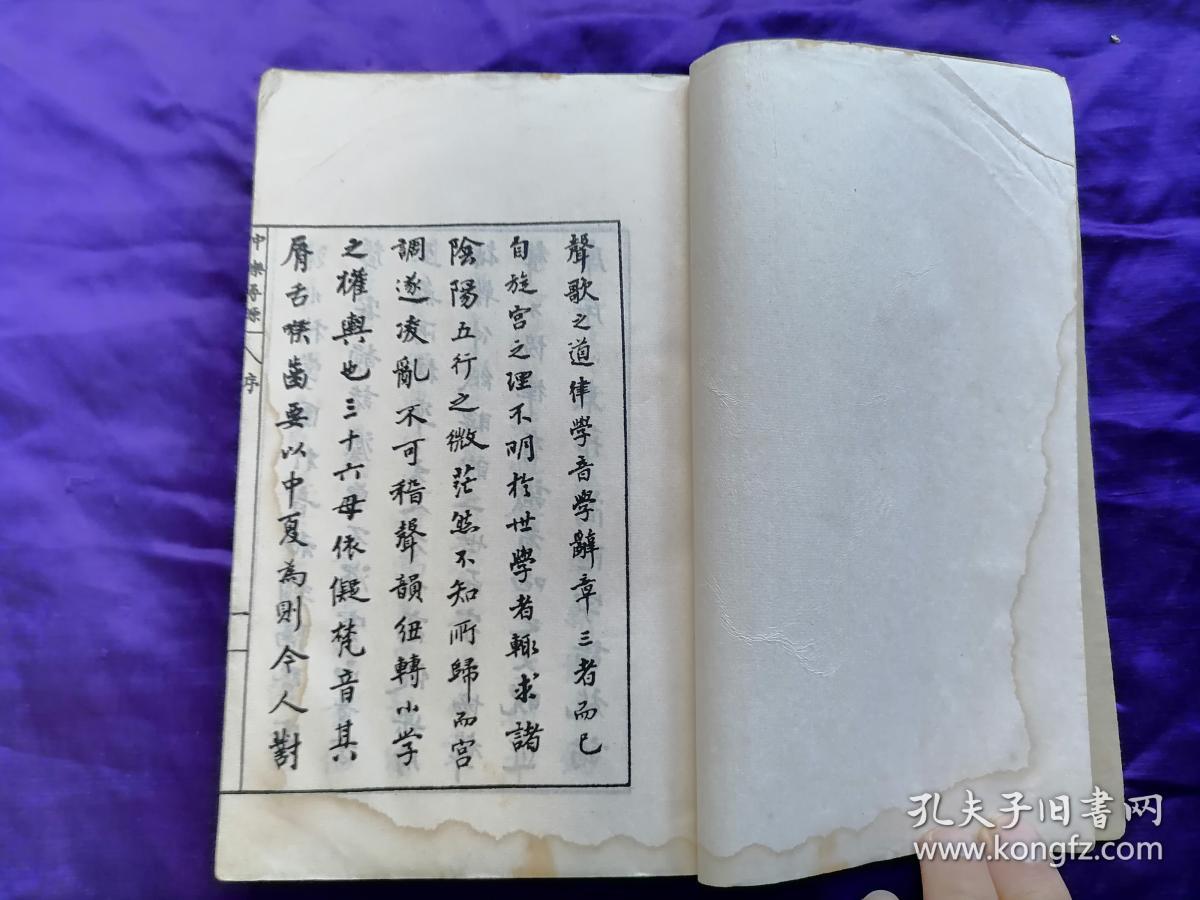 聲歌之道律學音學辭章三者而已
自旋宮之理不明於世學者輒求諸
陰陽五行之微茫然不知所歸而宮
調遂凌亂不可稽聲韻紐轉小學
之權輿也三十六母依儗梵音其
脣舌喉齒要以中夏為則今人對
中樂尋源 序
一
孔夫子旧書网
www.kongfz.com